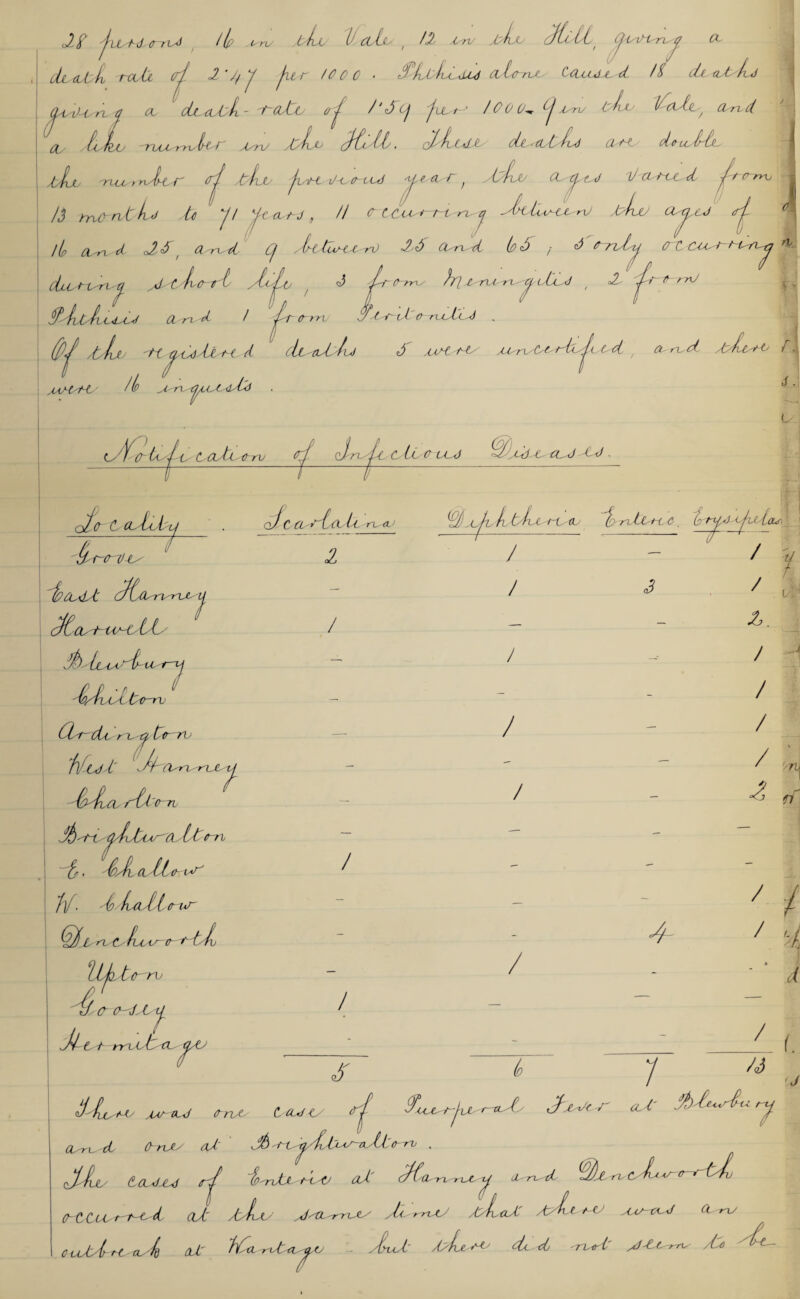 28 persons, 16 in the Vale, 12 in the Hill, giving a
death rate of 2.47 per 1000. Phthisis alone caused 18 deaths
giving a death-rate of 1.59 per 1000, 9 in the Vale, and
a like number in the Hill. These deaths are double
the number of the previous year, the ages varied from
13 months to 71 years, 11 occurring between the ages of
16 and 25, and 9 between 25 and 65; 5 only occurring
during school life, 3 from Meningitis, 2 from
Phthisis and 1 from Peritonitis.
Of the registered deaths 5 were uncertified, and there
were 16 inquests.
Notification of Infectious Diseases.
Locality. Scarlatina Diphtheria Enteric. Erysipelas
Grove 2 1 — 1
East Hanney — 1 3 1
Harwell 1 — — 2.
Blewbury — 1 — 1
Chilton — - - 1
Ardington — 1 — 1
West Hanney — — — 1
Charlton — 1 — 2
Brightwalton — — — —
E. Challow 1 — — —
W. Challow — — — 1
Denchworth - - 4 1
Upton — 1 - -
Goosey 1 — — —
Hermitage - - 1
5 6 7 13
There was one case of Puerperal Fever at Blewbury
and one at Brightwalton.
The cases of Enteric at Hanney and Denchworth
occurred at the same time that there was an
outbreak at Wantage - but there did not seem to be